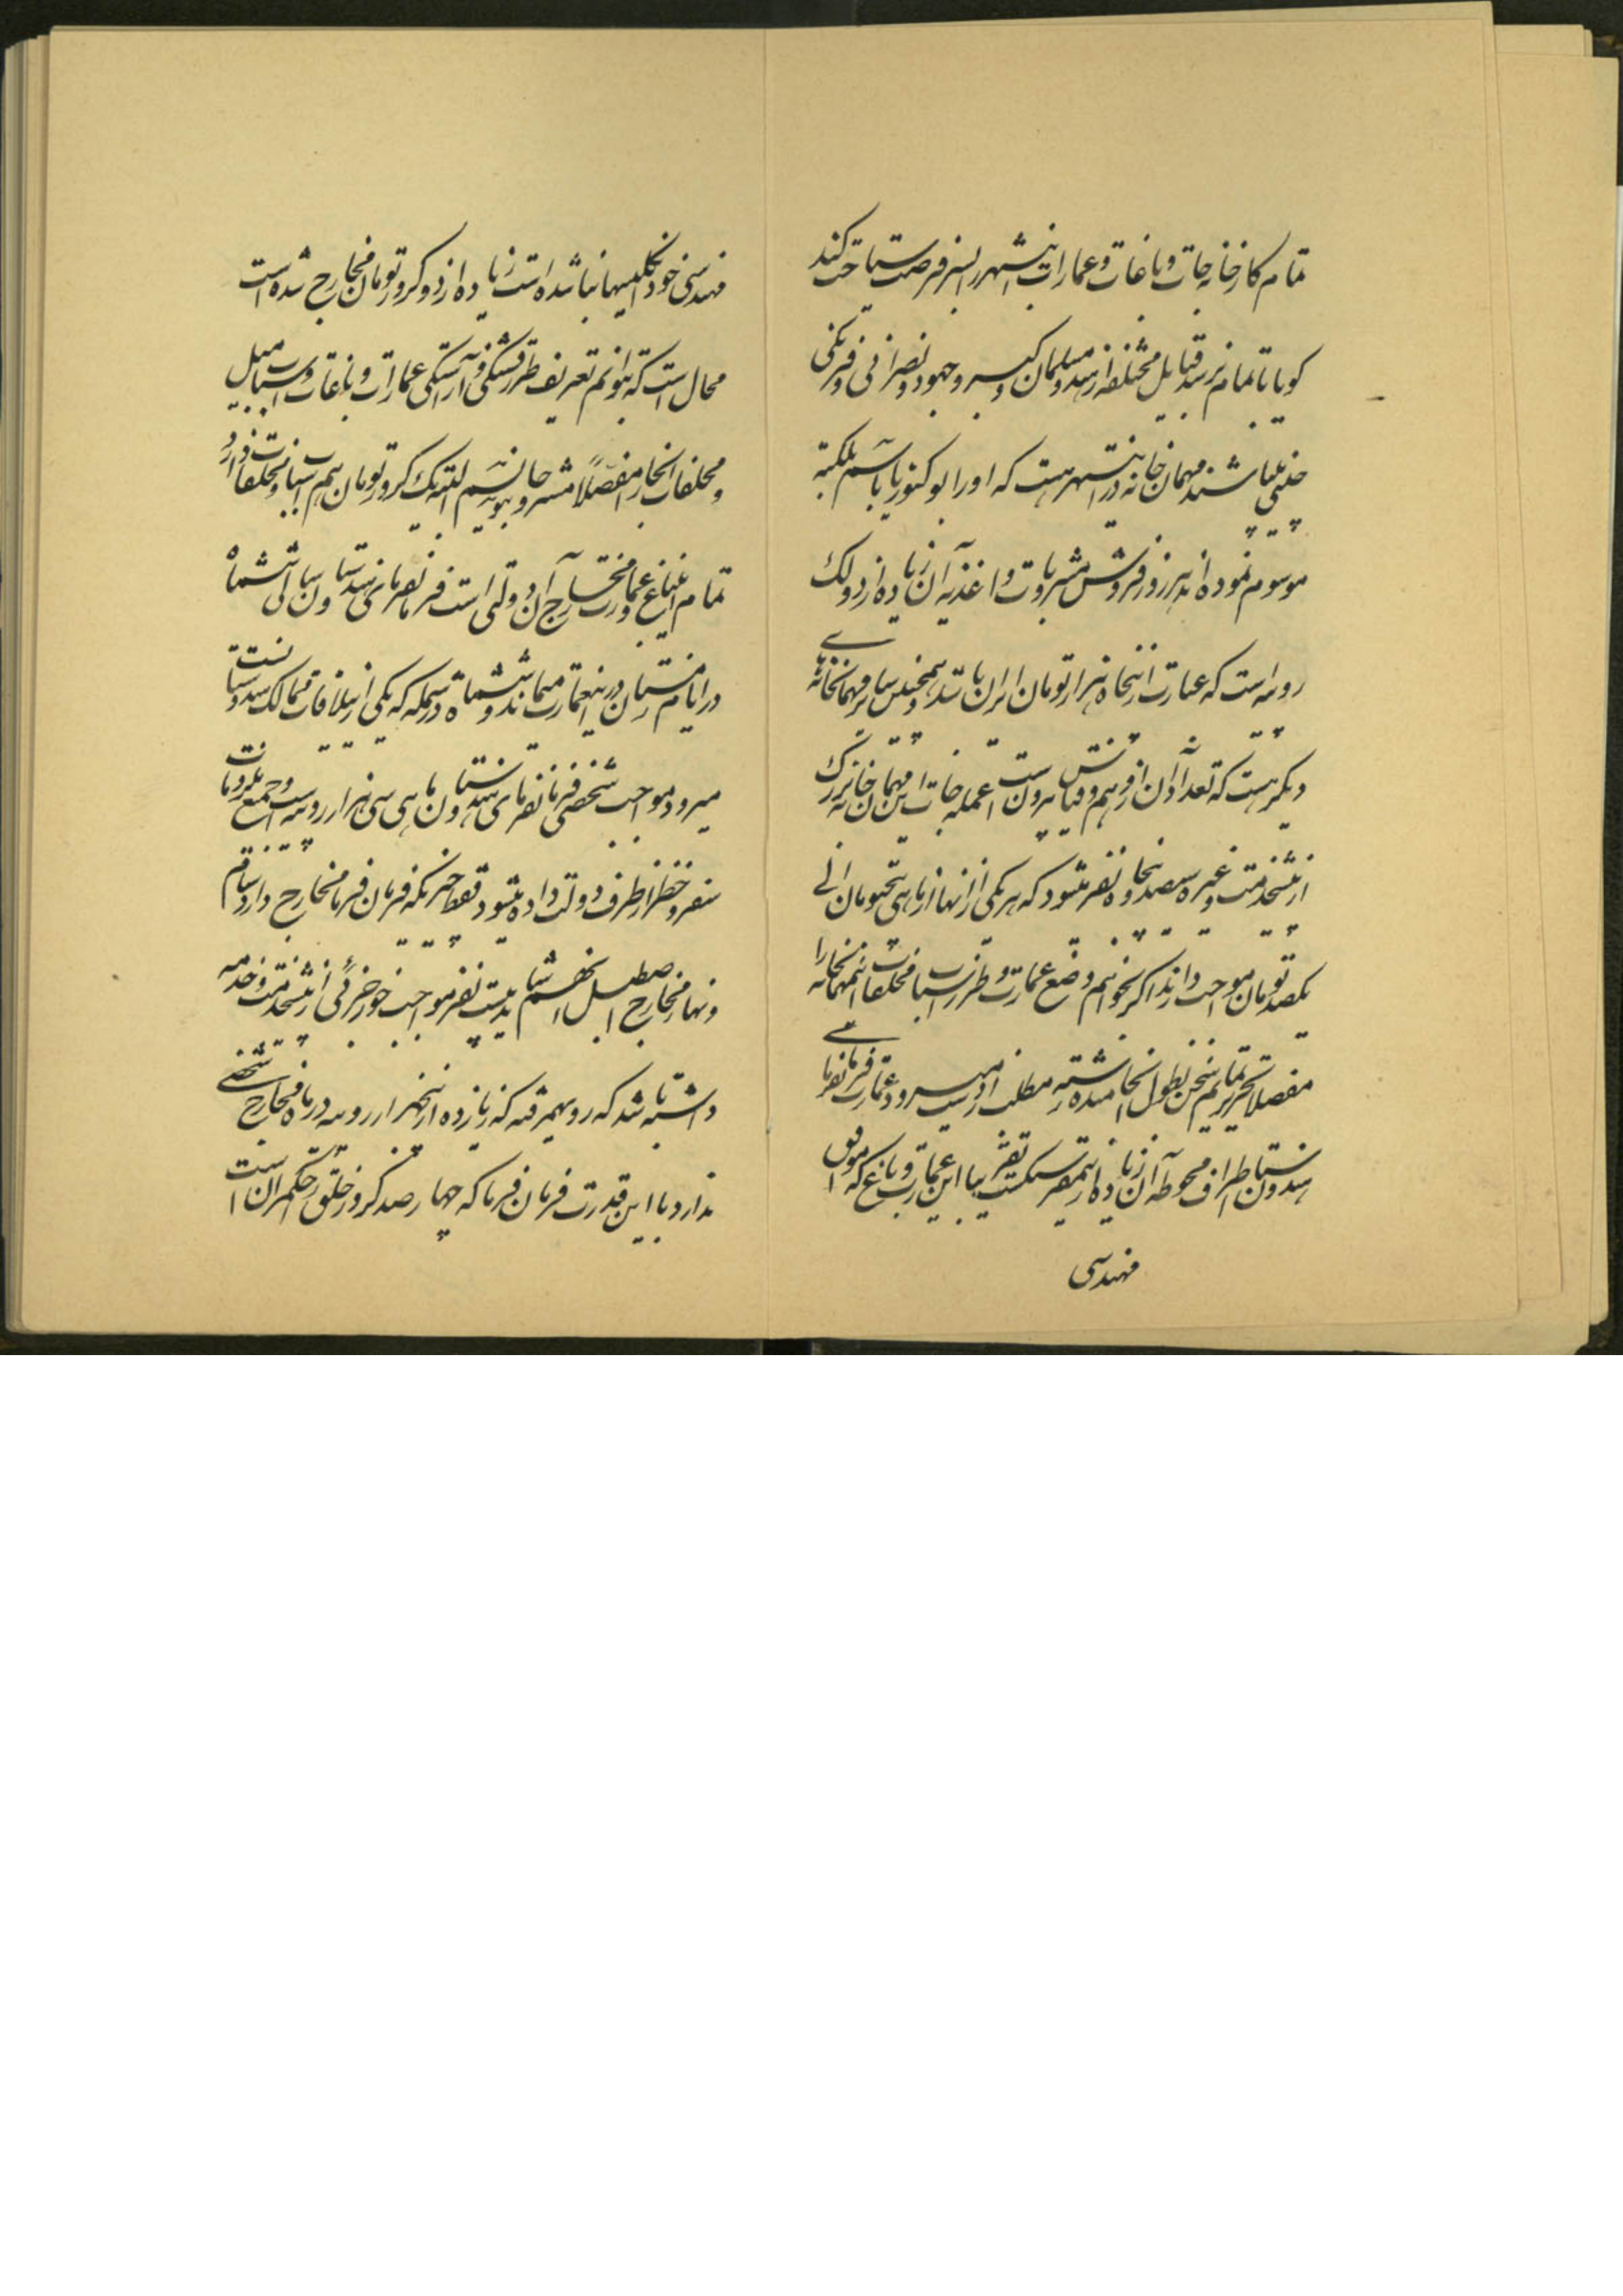 تمام کارخانه جات و باغات و عمارات اینشهر را بسر فرصت سیاحت کند
گویا تا تمام نرسد قبایل مختلفه از هندو و مسلمان و گبر و جهود و نصرانی و فرنگی
چنتی میباشند مهمان خانه در اینشهر هست که او را بوکتوریا باسم ملکه
موسوم نموده اند هر روز فروش مشروبات و اغذیه آن زیاده از دو لک
روپیه است که عبارت از پنجاه هزار تومان ایران باشد و همچنین سایر مهمانخانهای
دیگر هست که تعداد آن از وهم و قیاس بیرونست عمله جات این مهمان خانه بزرگ
از پیشخدمت و غیره سیصد و پنجاه نفر میشود که هر یکی از آنها از ماهی پنجتومان الی
یکصد تومان مواجب دارند اگر بخواهم وضع عمارت و طرز اسباب و مخلفات این مهمانخانه را
مفصلا تحریر نمایم سخن بطول انجامیده رشته مطلب از دست میرود عمارت فرمانفرمای
هندوستان اطراف و محوطه آن زیاده از نیمفرسنگست تقریبا این عمارت و باغ که موافق
مهندسی
مهندسی خود انگلیسها بنا شده است زیاده از دو کرور تومان مخارج شده است
محال است که بتوانم تعریف طرز قشنگی و آراستگی عمارات و باغات و اسباب مبل
و مخلفات آنجا را مفصلاً مشروحاً بنویسم البته یک کرور تومان هم اسباب و مخلفات دارد
تمام این باغ و عمارت و مخارج آن دولتی است فرمانفرمای هندوستان سالی ششماه
در ایام زمستان در اینعمارت میماند و ششماه در سمله که یکی از ییلاقات ممالک هندوستانست
میرود مواجب شخصی فرمانفرمای هندوستان ماهی سی هزار روپیه است و جمیع ملزومات
سفر و حضر از طرف دولت داده میشود فقط چیزیکه فرمان فرما مخارج دارد شام
و نهار و مخارج اصطبل است باید بیست نفر مواجب خور جزئی از پیشخدمت و خدمه
داشته باشد که رویهمرفته که زیاده از پنجهزار روپیه در ماه مخارج شخصی
ندارد با این قدرت فرمان فرما که چهار صد کرور خلق را حکمران است